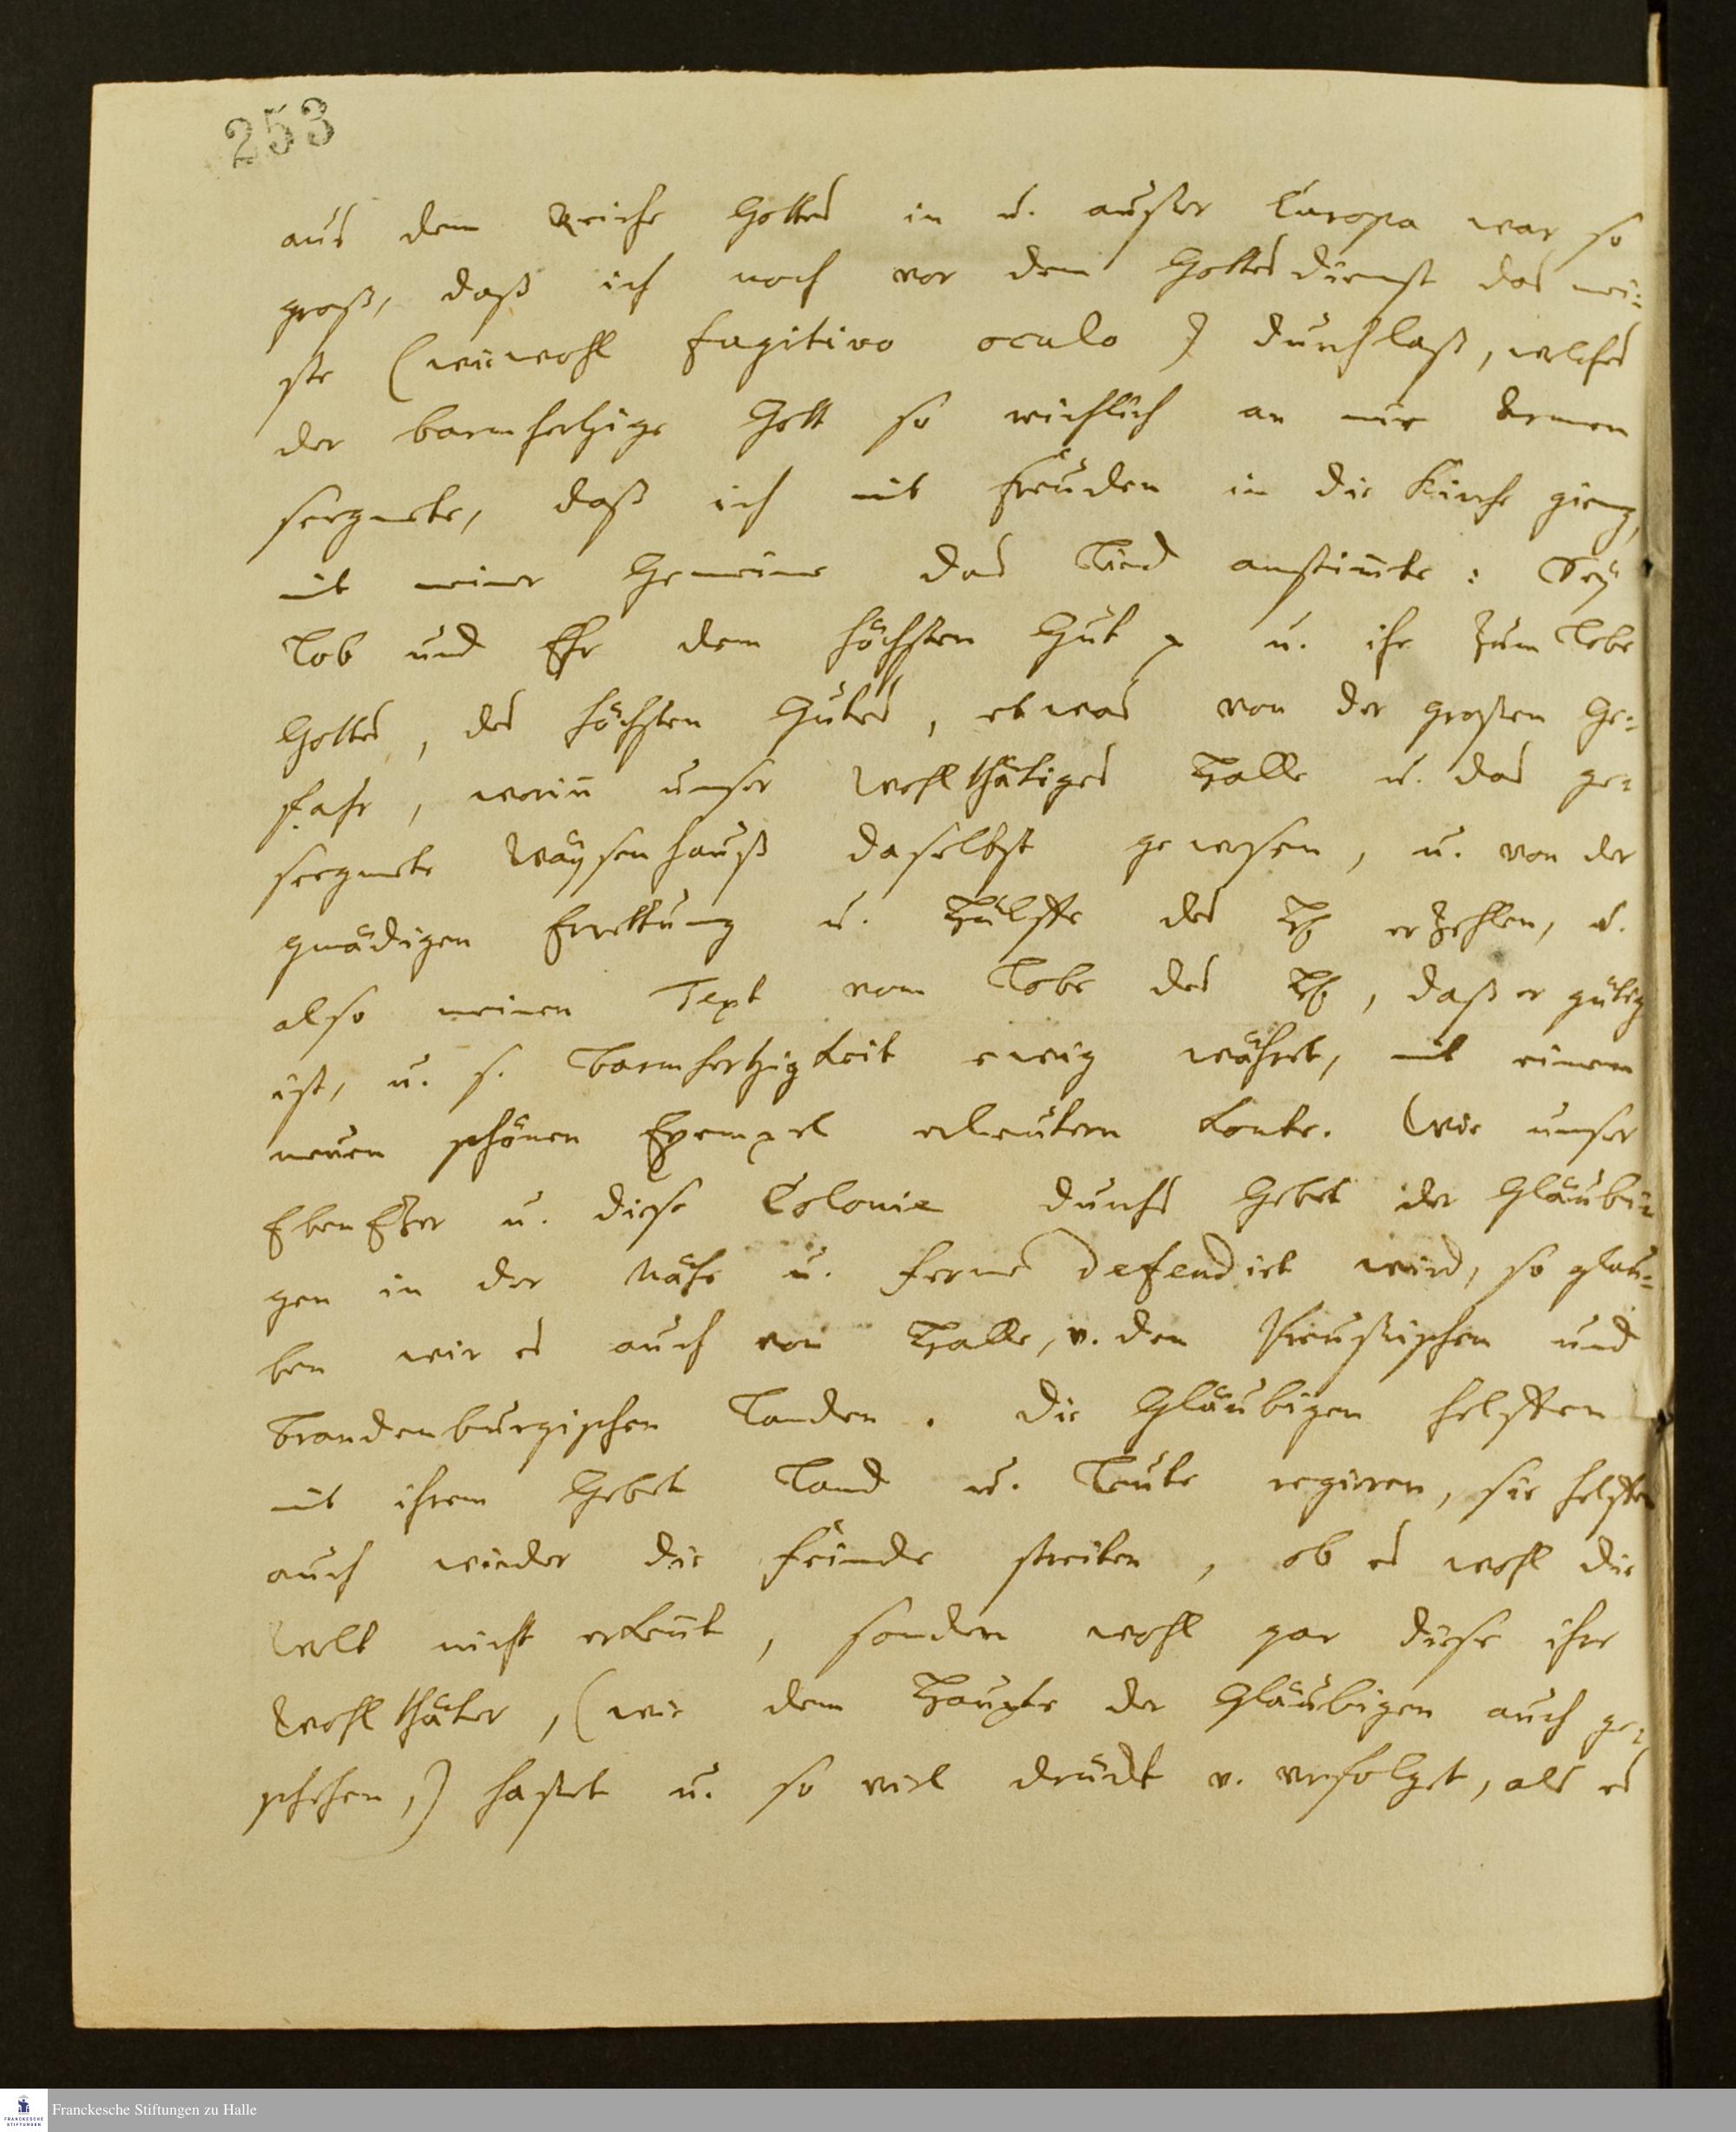 253
aus dem Reiche Gottes in u. außer Europa war so
groß, daß ich noch vor dem Gottesdienst das mei-
ste (wiewohl fugitivo oculo) durchlaß, welches
der barmhertzige Gott so reichlich an mir Armen
seegnete, daß ich mit Freuden in die Kirche gieng,
mit meiner Gemeine das Lied anstim̄te: Sey
Lob und Ehr dem höchsten Gut p u. ihr zum Lobe
Gottes, des höchsten Gutes, etwas von der großen Ge-
fahr, worin̄ unser Wohlthätiges Halle u. das ge-
seegnete Wäysenhauß daselbst gewesen, u. von der
gnädigen Errettung u. Hülffe des H erzehlen, u.
also meinen Text vom Lobe des H, daß er gütig
ist, u. s. Barmhertzigkeit ewig währet, mit einem
neuen schönen Exempel erleutern konte. Wie unser
EbenEzer u. diese Colonie durchs Gebet der Gläubi-
gen in der Nähe u. Ferne defendirt wird, so glau-
ben wir es auch von Halle, u. den Preußischen und
Brandenburgischen Landen. Die Gläubigen helffen
mit ihrem Gebet Land u. Leute regieren, sie helffen
auch wieder die Feinde streiten, ob es wohl die
Welt nicht erken̄t, sondern wohl gar diese ihre
Wohlthäter, (wie dem Haupte der Gläubigen auch ge-
schehen,) haßet u. so viel drückt u. verfolget, als es
Franckesche Stiftungen zu Halle
FRANCKESCHE
STIFTUNGEN